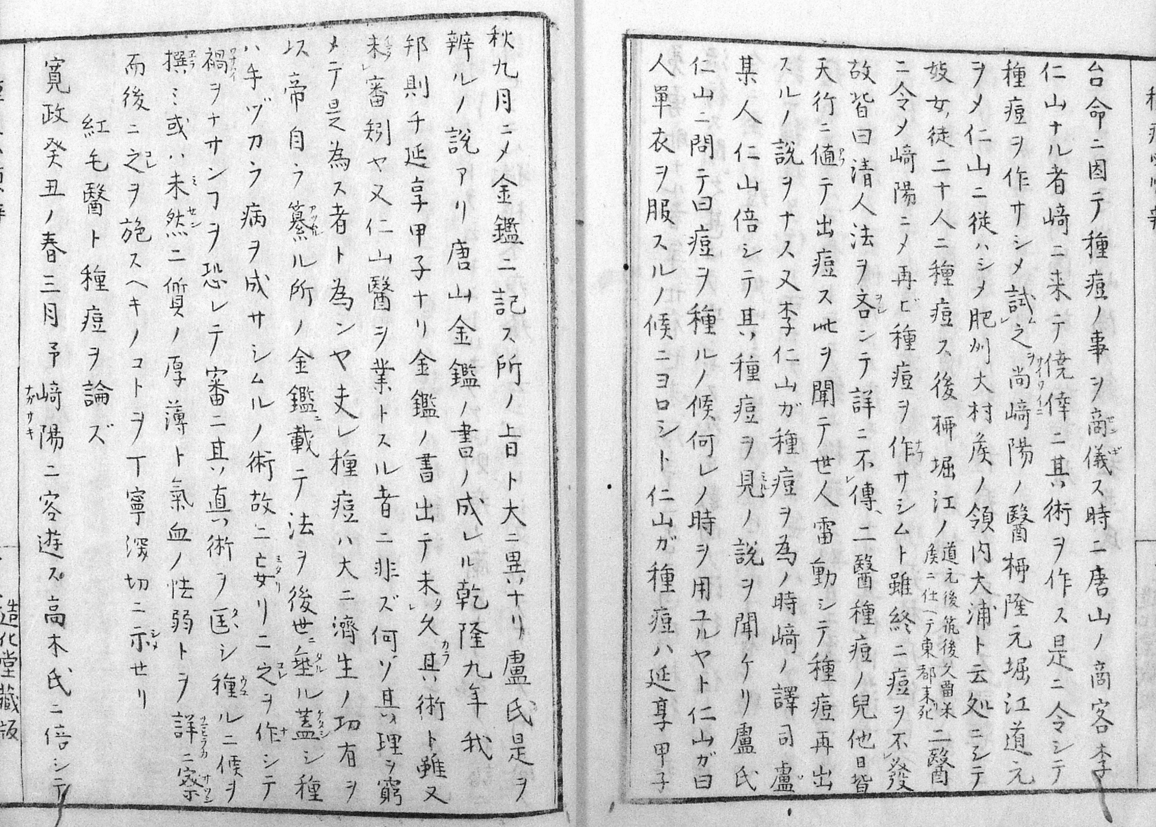 台命ニ因テ種痘ノ事ヲ商儀ス時ニ唐山ノ商客李
仁山ナル者﨑ニ来テ僥倖ニ其術ヲ作ス是ニ令シテ
種痘ヲ作サシメ試之尚﨑陽ノ醫柹隆元堀江道元
ヲメ仁山ニ從ハシメ肥州大村矦ノ領内大浦ト云処ニシテ
妓女徒二十人ニ種痘ス後柹堀江ノ道元後筑後久留米矦ニ仕ヘテ東都ニ死二醫
ニ令メ﨑陽ニメ再ビ種痘ヲ作サシムト雖終ニ痘ヲ不發
故皆曰清人法ヲ吝ンテ詳ニ不傳二醫種痘ノ兒他日皆
天行ニ値テ出痘ス此ヲ聞テ世人雷動シテ種痘再出
スルノ説ヲナス又李仁山ガ種痘ヲ為ノ時﨑ノ譯司盧
某人仁山倍シテ其種痘ヲ見ノ説ヲ聞ケリ盧氏
仁山ニ問テ曰痘ヲ種ルノ候何レノ時ヲ用ユルヤト仁山ガ曰
人單衣ヲ服スルノ候ニヨロシト仁山ガ種痘ハ延享甲子
秋九月ニメ金鑑ニ記ス所ノ旨ト大ニ異ナリ盧氏是ヲ
辨ルノ説アリ唐山金鑑ノ書ノ成レル乾隆九年我
邦則チ延享甲子ナリ金鑑ノ書出テ未タ久其術ト雖又
未審矧ヤ又仁山醫ヲ業トスル者ニ非ズ何ゾ其理ヲ窮
メテ是為ス者ト為ンヤ夫レ種痘ハ大ニ濟生ノ功有ヲ
以帝自ラ纂ル所ノ金鑑ニ載テ法ヲ後世ニ埀ル蓋シ種
ハ手ヅカラ病ヲ成サシムルノ術故ニ妄リニ之ヲ作シテ
禍ヲナサンヿヲ恐レテ審ニ其真術ヲ匡シ種ルニ候ヲ
撰ミ或ハ未然ニ質ノ厚薄ト氣血ノ怯弱トヲ詳ニ察
而後ニ之ヲ施スヘキノコトヲ丁寧深切ニ示セリ
紅毛醫ト種痘ヲ論ズ
寛政癸丑ノ春三月予﨑陽ニ客遊ス高木氏ニ倍シテ
造化堂藏版